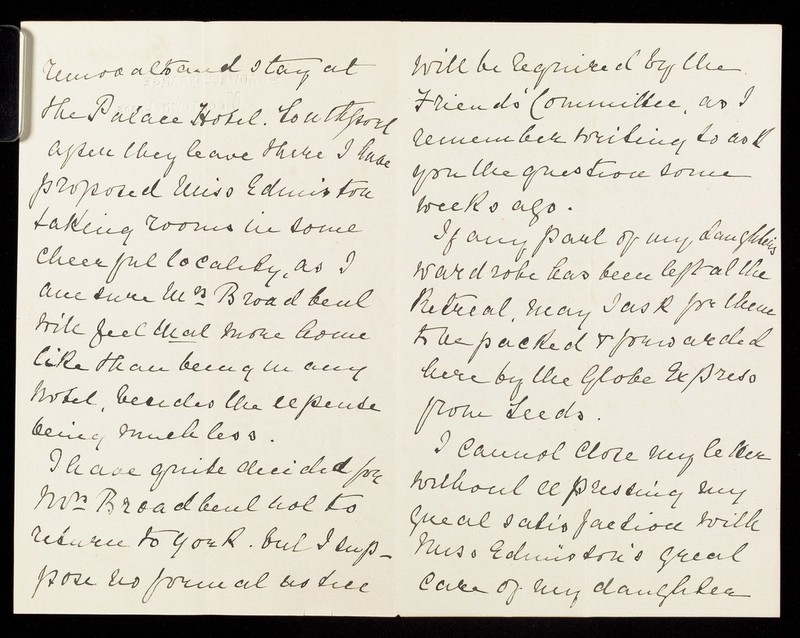 removal to and stay at
the Palace Hotel. Southport
after they leave there I have
proposed Miss Edmiston
taking rooms in some
cheerful locality, as I
am sure Mrs Broadbent
will feel that more home
like than being in any
hotel, besides the expense
being much less.
I have quite decided for
Mrs Broadbent not to
return to York. but I sup-
pose no formal notice
will be required by the
Friends' Committee, as I
remember writing to ask
you the question some
weeks ago.
If any part of my daughters
wardrobe has been left at the
Retreat, may I ask for them
to be packed & forwarded
here by the Globe Express
from Leeds.
I cannot close my letter
without expressing my
great satisfaction with
Miss Edmiston's great
care of my daughter